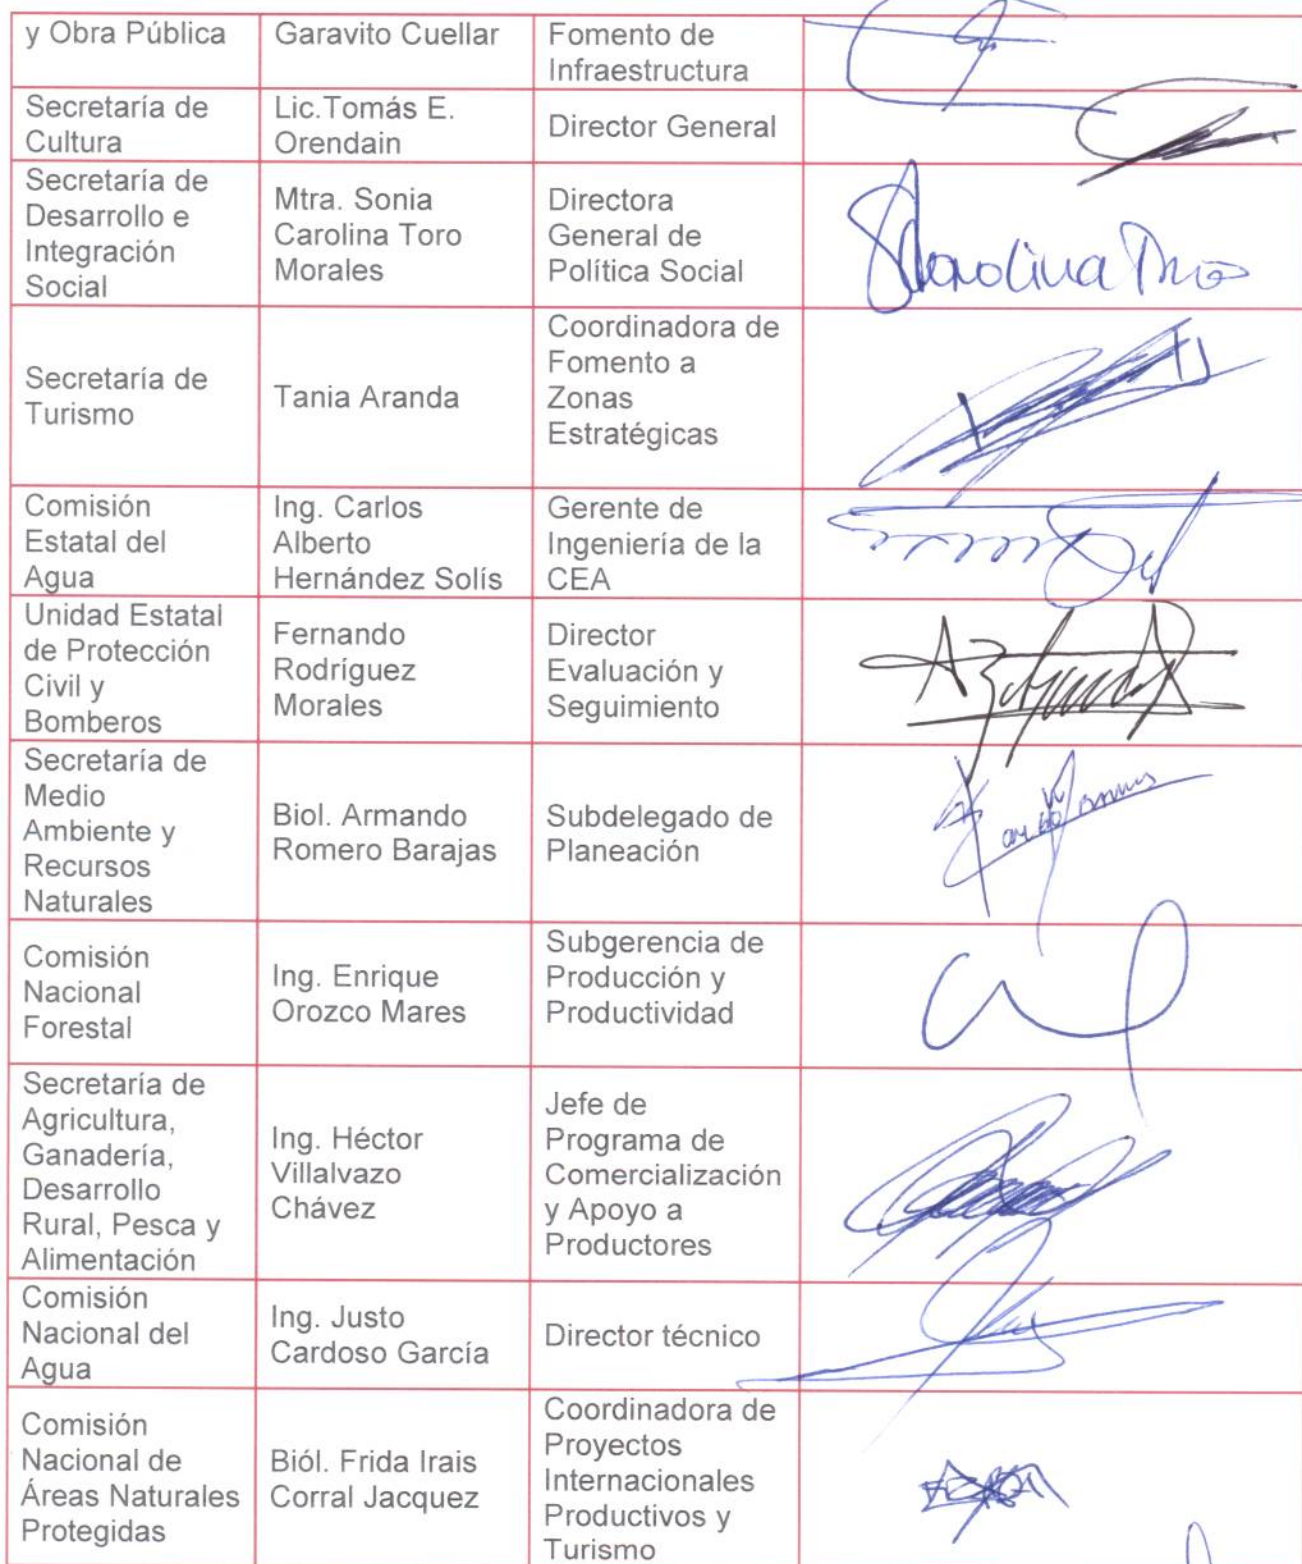 y Obra Pública
Garavito Cuellar
Fomento de
Infraestructura
Secretaría de
Cultura
Lic.Tomás E.
Orendain
Director General
Secretaría de
Desarrollo e
Integración
Social
Mtra. Sonia
Carolina Toro
Morales
Directora
General de
Política Social
SCarolina Toro
Secretaría de
Turismo
Tania Aranda
Coordinadora de
Fomento a
Zonas
Estratégicas
Comisión
Estatal del
Agua
Ing. Carlos
Alberto
Hernández Solís
Gerente de
Ingeniería de la
CEA
Unidad Estatal
de Protección
Civil y
Bomberos
Fernando
Rodríguez
Morales
Director
Evaluación y
Seguimiento
Secretaría de
Medio
Ambiente y
Recursos
Naturales
Biol. Armando
Romero Barajas
Subdelegado de
Planeación
Comisión
Nacional
Forestal
Ing. Enrique
Orozco Mares
Subgerencia de
Producción y
Productividad
Secretaría de
Agricultura,
Ganadería,
Desarrollo
Rural, Pesca y
Alimentación
Ing. Héctor
Villalvazo
Chávez
Jefe de
Programa de
Comercialización
y Apoyo a
Productores
Comisión
Nacional del
Agua
Ing. Justo
Cardoso García
Director técnico
Comisión
Nacional de
Áreas Naturales
Protegidas
Biól. Frida Irais
Corral Jacquez
Coordinadora de
Proyectos
Internacionales
Productivos y
Turismo